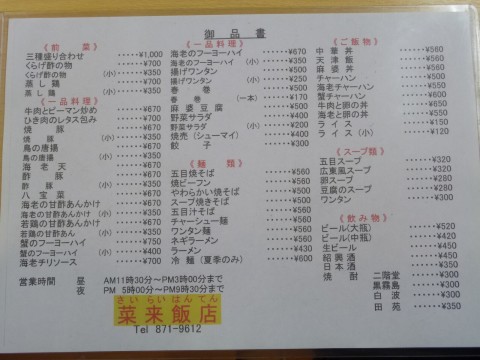 御品書
《前菜》
三種盛り合わせ ・・・・・¥1,000
くらげ酢の物 ・・・・・¥700
くらげ酢の物 (小) ・・・・・¥350
蒸し鶏 ・・・・・¥700
蒸し鶏 (小) ・・・・・¥350
《一品料理》
牛肉とピーマン炒め ・・・・・¥670
ひき肉のレタス包み ・・・・・¥700
焼豚 ・・・・・¥670
焼豚 (小)
鳥の唐揚 ・・・・・¥670
鳥の唐揚 (小)
海老天 ・・・・・¥670
酢豚 ・・・・・¥670
酢豚 (小) ・・・・・¥350
八宝菜 ・・・・・¥670
海老の甘酢あんかけ ・・・・・¥670
海老の甘酢あんかけ (小) ・・・・・¥350
若鶏の甘酢あんかけ ・・・・・¥670
若鶏の甘酢あん (小) ・・・・・¥350
蟹のフーヨーハイ ・・・・・¥750
蟹のフーヨーハイ (小) ・・・・・¥400
海老チリソース ・・・・・¥700
営業時間 昼 AM11時30分〜PM3時00分まで
夜 PM 5時00分〜PM9時30分まで
さいらいはんてん
菜来飯店
Tel 871-9612
《一品料理》
海老のフーヨーハイ ・・・・・¥670
海老のフーヨーハイ (小) ・・・・・¥350
揚げワンタン ・・・・・¥700
揚げワンタン (小) ・・・・・¥350
春巻 ・・・・・¥500
春巻 (一本) ・・・・・¥170
麻婆豆腐 ・・・・・¥500
野菜サラダ ・・・・・¥700
野菜サラダ (小) ・・・・・¥350
焼売(シューマイ) ・・・・・¥400
餃子 ・・・・・¥300
《麺類》
五目焼そば ・・・・・¥560
焼ビーフン ・・・・・¥560
やわらかい焼そば ・・・・・¥560
スープ焼きそば ・・・・・¥560
五目汁そば ・・・・・¥560
チャーシュー麺 ・・・・・¥560
ワンタン麺 ・・・・・¥560
ネギラーメン ・・・・・¥500
ラーメン ・・・・・¥450
冷麺(夏季のみ) ・・・・・¥600
《ご飯物》
中華丼 ・・・・・¥560
天津飯 ・・・・・¥560
麻婆丼 ・・・・・¥560
チャーハン ・・・・・¥500
海老チャーハン ・・・・・¥550
蟹チャーハン ・・・・・¥600
牛肉と卵の丼 ・・・・・¥560
海老と卵の丼 ・・・・・¥560
ライス ・・・・・¥150
ライス (小) ・・・・・¥120
《スープ類》
五目スープ ・・・・・¥320
広東風スープ ・・・・・¥350
卵スープ ・・・・・¥300
豆腐のスープ ・・・・・¥300
ワンタン ・・・・・¥300
《飲み物》
ビール(大瓶) ・・・・・¥520
ビール(中瓶) ・・・・・¥420
生ビール ・・・・・¥450
紹興酒 ・・・・・¥350
日本酒 ・・・・・¥350
焼酎 二階堂 ・・・・・¥300
黒霧島 ・・・・・¥300
白波 ・・・・・¥300
田苑 ・・・・・¥350